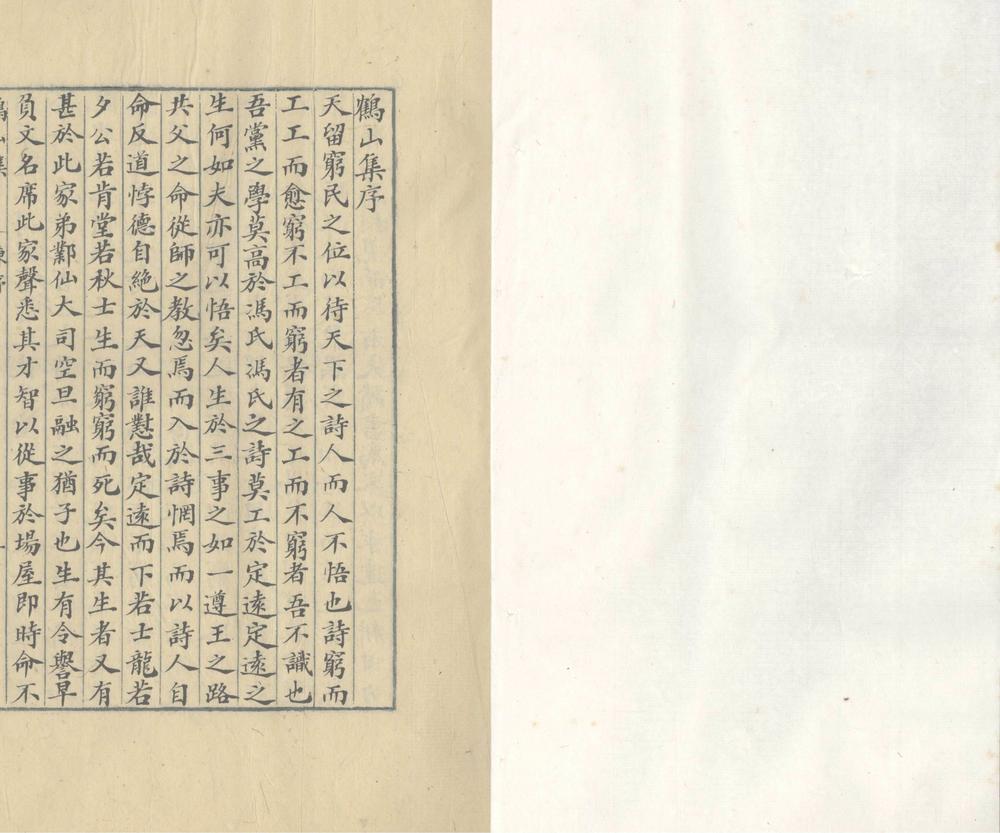 鶴山集序
天留窮民之位以待天下之詩人而人不悟也詩窮而
工工而愈窮不工而窮者有之工而不窮者吾不識也
吾黨之學莫高於馮氏馮氏之詩莫工於定遠定遠之
生何如夫亦可以悟矣人生於三事之如一遵王之路
共父之命從師之教忽焉而入於詩惘焉而以詩人自
命反道悖德自絶於天又誰懟哉定遠而下若士龍若
夕公若肯堂若秋士生而窮窮而死矣今其生者又有
甚於此家弟酇仙大司空旦融之猶子也生有令譽早
負文名席此家聲悉其才智以從事於場屋即時命不